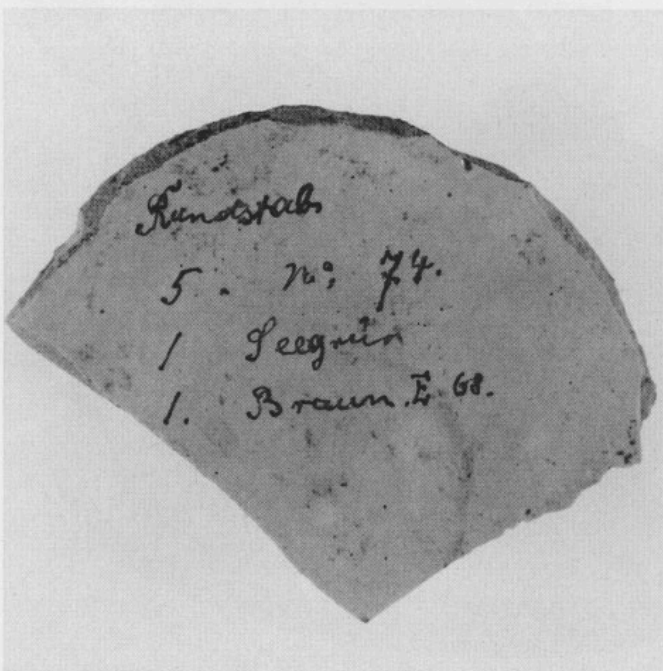 Rundstab
5. No. 74.
1 Seegrün
1. Braun. E 68.